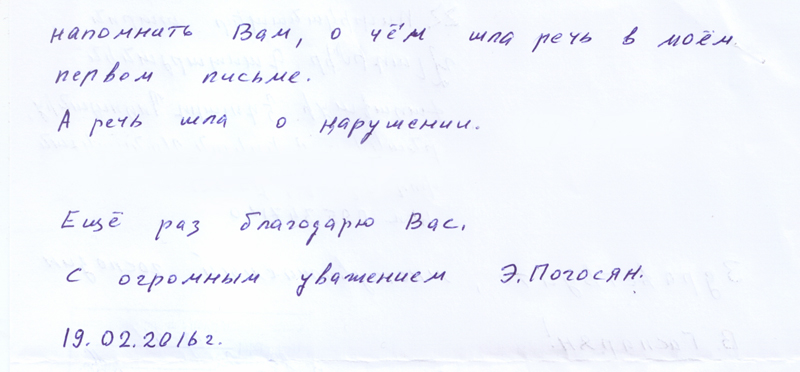 напомнить Вам, о чём шла речь в моём
первом письме.
А речь шла о нарушении.
Ещё раз благодарю Вас.
С огромным уважением Э.Погосян.
19.02.2016г.